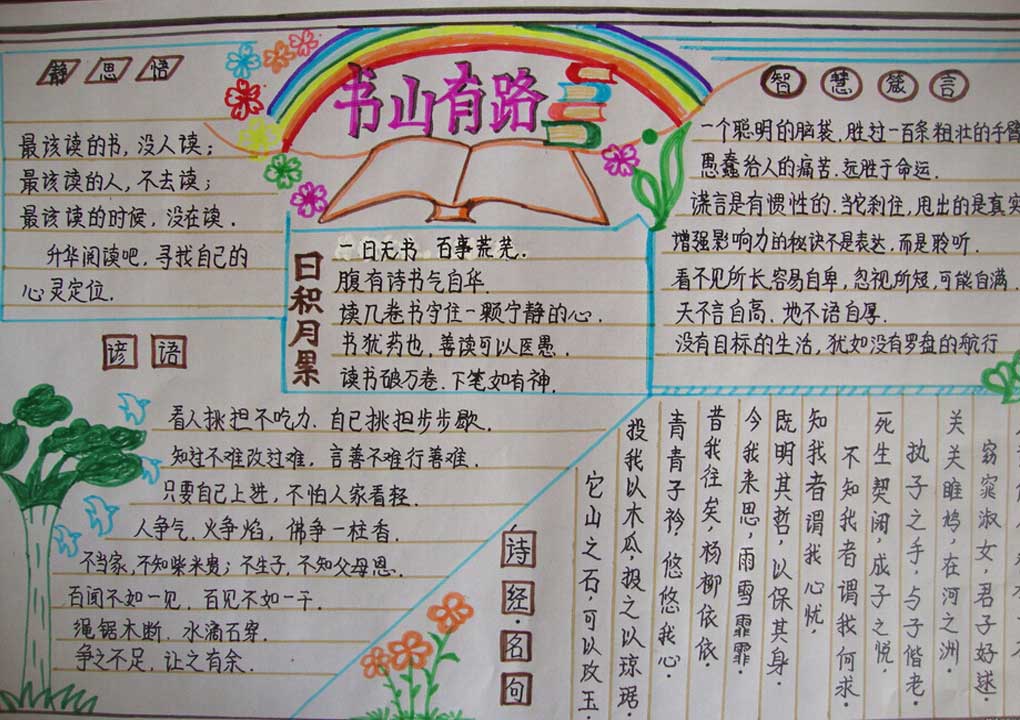 书山有路
静思悟
最该读的书,没人读;
最该读的人,不去读;
最该读的时候,没在读.
升华阅读吧,寻找自己的
心灵定位.
日积月累
一日无书 百事荒芜.
腹有诗书气自华.
读几卷书守住一颗宁静的心.
书犹药也,善读可以医愚.
读书破万卷.下笔如有神.
智慧箴言
一个聪明的脑袋,胜过一百条粗壮的手臂
愚蠢给人的痛苦.远胜于命运.
谎言是有惯性的.当它刹住,甩出的是真实
增强影响力的秘诀不是表达,而是聆听.
看不见所长.容易自卑,忽视所短,可能自满.
天不言自高、地不语自厚.
没有目标的生活,犹如没有罗盘的航行
谚语
看人挑担不吃力.自己挑担步步歇.
知过不难改过难,言善不难行善难.
只要自己上进,不怕人家看轻.
人争气,火争焰,佛争一柱香.
不当家,不知柴米贵;不生子,不知父母恩.
百闻不如一见,百见不如一干.
绳锯木断.水滴石穿.
争之不足,让之有余.
诗经·名句
它山之石,可以攻玉.
投我以木瓜,报之以琼琚.
青青子衿,悠悠我心.
昔我往矣,杨柳依依.
今我来思,雨雪霏霏.
既明其哲,以保其身.
知我者谓我心忧,
不知我者谓我何求.
死生契阔,成子之悦,
执子之手,与子偕老.
关关雎鸠,在河之洲.
窈窕淑女,君子好逑.